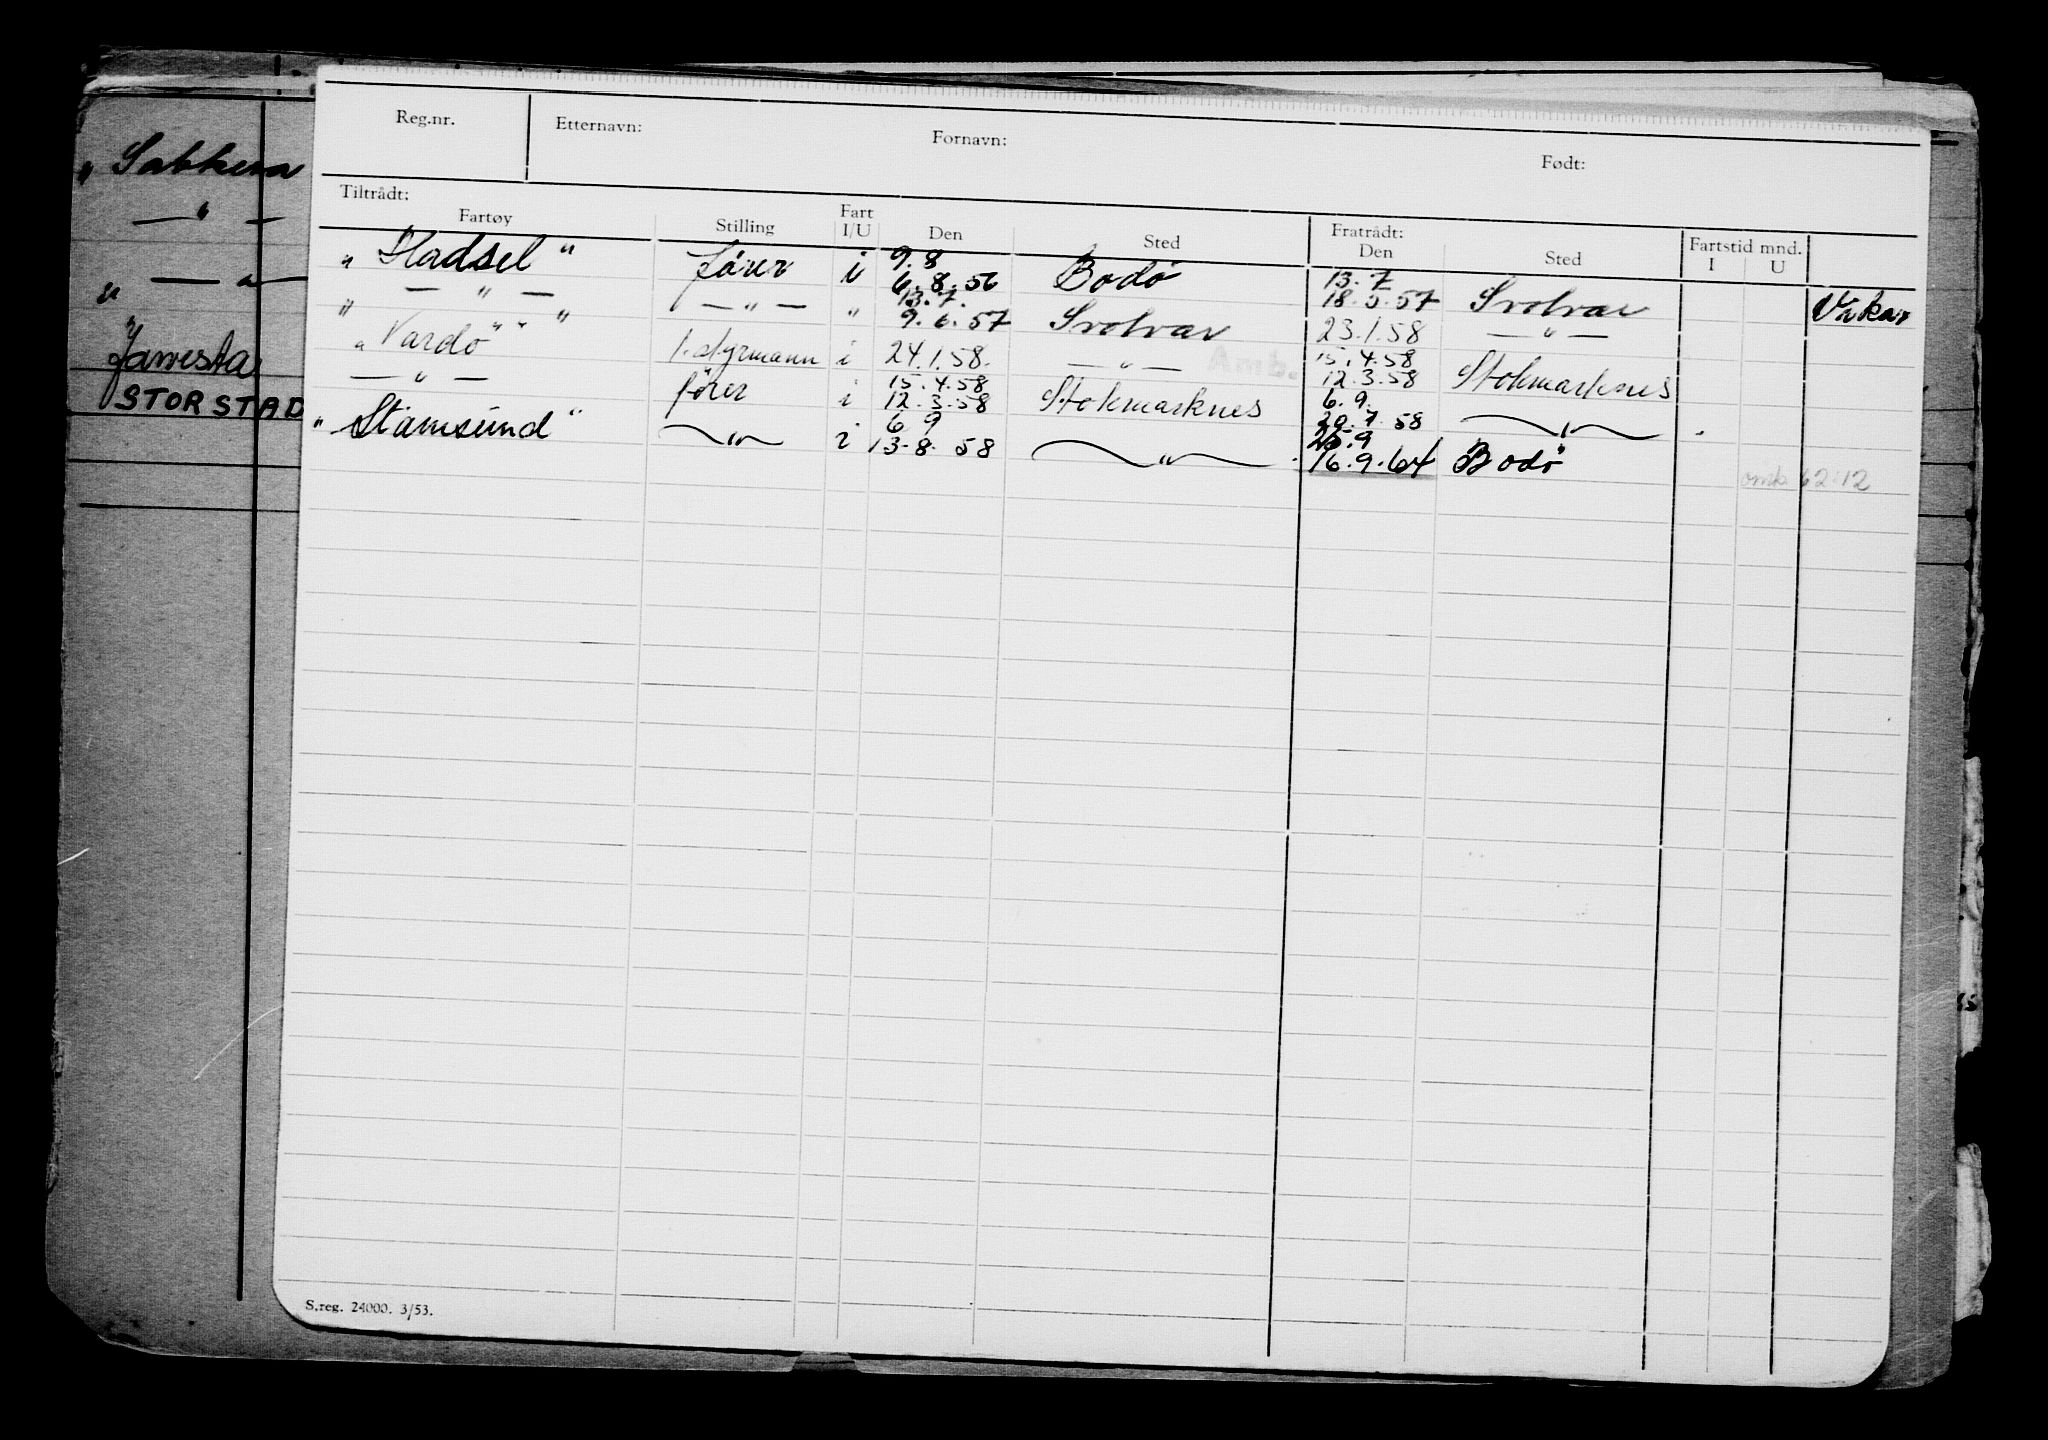 Reg.nr. Etternavn: Fornavn: Født:
Tiltrådt: Fratrådt: Fartstid mnd.
Fartøy Stilling Fart I/U Den Sted Den Sted I U
" Hadsel " fører i 9.8 Bodø 13.7
6.8.56 18.5.57 Svolvær
— " — — " — " 13.7. Svolvær 23.1.58 — " —
9.6.57
" Vardø " 1. styrmann i 24.1.58. — " — 15.4.58 Stokmarknes
Amb. 12.3.58
— " — fører i 15.4.58 Stokmarknes 6.9.
12.3.58 20.7.58 — " —
" Stamsund " — " — i 6.9 — " — 25.9
13.8.58 16.9.64 Bodø
omk. 62:12
— " —
" — " —
STORSTAD
S.reg. 24000. 3/53.